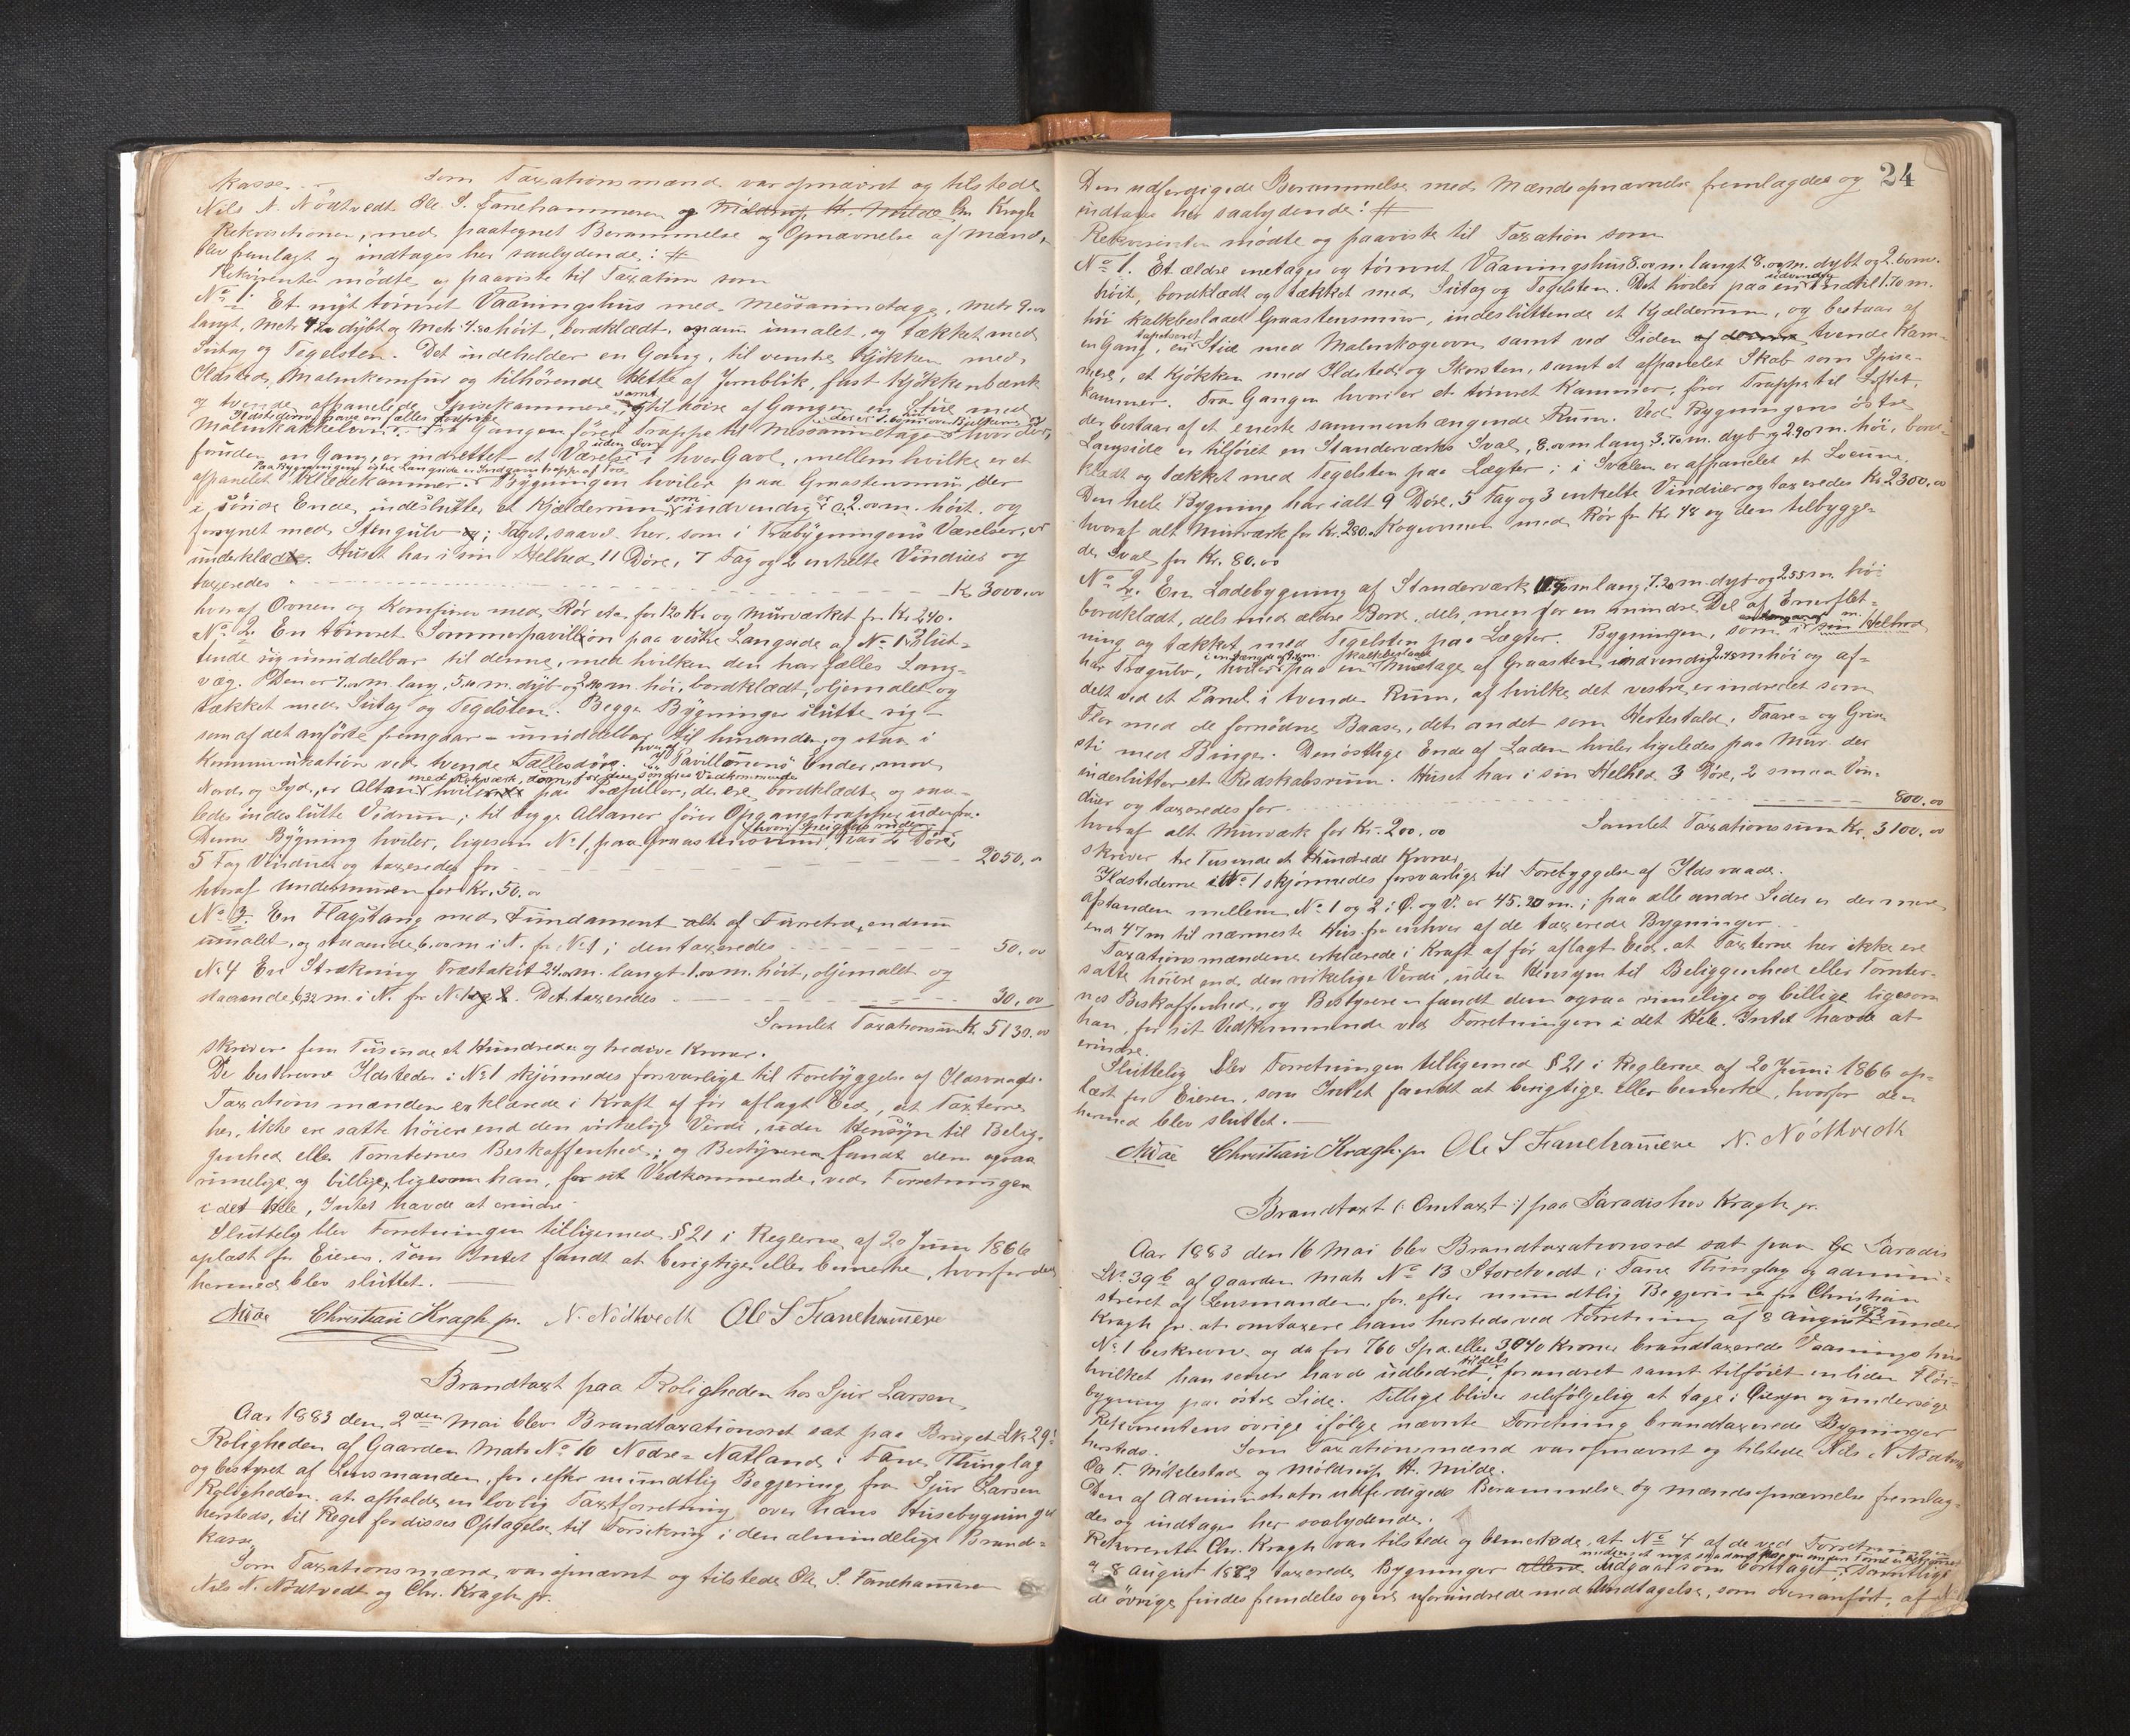 kasse. — Som Taxationsmænd var opnævnt og tilstede
Nils N. Nödtvedt Ole S. Fanehammeren og Mildrup H. Milde Chr Kragh
Rekvisitionen, med paategnet Berammelse og Opnævnelse af Mænd,
blev fremlagt og indtages her saalydende: #
Rekvirenten mødte og paaviste til Taxation som
No 1. Et nyt tömret Vaaningshus med Messaninetage, Metr 9.00
langt, Metr 7.20 dybt og Metr 4.80 höit, bordklædt, umalet og tækket med
Sutag og Tegelsten. Det indeholder en Gang, til venstre Kjökken med
Ildsted, Malmkomfur og tilhörende Hette af Jernblik, fast Kjökkenbænk
og tvende afpanelede Spisekammere, samt til höire af Gangen en Stue med
Ildstederne have en fælles Skorsten
Malmkakkelovn. Fra Gangen förer Trappe til Messaninetagen, hvor der,
foruden en Gang, er indrettet et Værelse i hver Gavl, mellem hvilke er et
Paa Bygningens östre Langside er Indgangstrappe af Træ
afpanelet Klædekammer. Bygningen hviler paa Graastensmur, der
i söndre Ende indeslutter et Kjælderrum, som indvendig er 2.00 m. höit og
forsynet med Stengulv; Taget, saavel her, som i Træbygningens Værelser, er
underklædt. Huset har i sin Helhed 11 Döre, 7 Fag og 2 enkelte Vinduer og
taxeredes — Kr 3000.00
hvoraf Ovnen og Komfuren med Rör etc. for 120 Kr. og Murværket for Kr. 240.
No 2. En tömret Sommerpavillion paa vestre Langside af No 1 slut-
tende sig umiddelbar til denne, med hvilken den har fælles Lang-
væg. Den er 7.00 m. lang, 5.10 m. dyb og 2.90 m. höi, bordklædt, oljemalet og
tækket med Sutag og Tegelsten. Begge Bygninger slutte sig —
som af det anförte fremgaar — umiddelbar til hinanden, og staa i
Kommunikation ved tvende Fællesdöre. Ved hver af Pavillionens Ender, mod
med Rekværk, döra, for den söndres Vedkommende
Nord og Syd, er Altan hvilende paa Træpiller, der ere bordklædte og saa-
ledes indeslutte Vedrum; til begge Altaner förer Opgangstrapper udenfra.
Denne Bygning hviler, ligesom No 1, paa Graastensmur, har 2 Döre,
5 Fag Vinduer og taxeredes for — 2050.00
hvoraf Undermuren for Kr. 50.00
No 3. En Flagstang med Fundament alt af Furretræ, endnu
umalet, og staaende 6.00 m i N. for No 1; den taxeredes — 50.00
No 4 En Strækning Træstakit 24.00 m. langt 1.00 m. höit, oljemalet og
staaende 6,32 m. i N. for No 1 og 2. Det taxeredes — 30.00
Samlet Taxationssum Kr. 5130.00
skriver fem Tusende et Hundrede og tredive Kroner.
De beskrevne Ildsteder i No 1 skjönnedes forsvarlige til Forebyggelse af Ildsvaade.
Taxationsmændene erklærede i Kraft af för aflagt Eed, at Taxterne
her, ikke ere satte höiere end den virkelige Verdi, uden Hensyn til Belig-
genhed eller Tomternes Beskaffenhed; og Bestyreren fandt dem ogsaa
rimelige og billige, ligesom han, for sit Vedkommende, ved Forretningen
i det Hele, Intet havde at erindre.
Sluttelig blev Forretningen tilligemed § 21 i Reglerne af 20 Juni 1866
oplæst for Eieren, som Intet fandt at berigtige eller bemerke, hvorfor den
hermed blev sluttet. —
Christian Kragh jr. N. Nödtvedt Ole S Fanehammeren
Brandtaxt paa Roligheden hos Sjur Larsen
Aar 1883 den 2den Mai blev Brandtaxationsret sat paa Bruget LNo 29
Roligheden af Gaarden Matr No 10 Nedre-Natland i Fane Thinglag
og bestyret af Lensmanden, for, efter mundtlig Begjering fra Sjur Larsen
Roligheden, at afholde en lovlig Taxtforretning over hans Husebygninger
hersteds, til Regel for disses Optagelse til Forsikring i den almindelige Brand-
kasse.
Som Taxationsmænd var opnævnt og tilstede Ole S. Fanehammeren
Nils N. Nödtvedt og Chr. Kragh jr.
24
Den udfærdigede Berammelse med Mændsopnævnelse fremlagdes og
indtages her saalydende: #
Rekvirenten mødte og paaviste til Taxation som
No 1. Et ældre enetages og tömret Vaaningshus 8.00 m. langt 8.00 m. dybt og 2.60 m.
höit, bordklædt og tækket med Sutag og Tegelsten. Det hviler paa en udvendig indtil 1.70 m.
höi kalkbeslaaet Graastensmur, indesluttende et Kjælderrum, og bestaar af
en Gang, en tapetseret Stue med Malmkogeovn samt ved Siden af denne tvende Kam-
mere, et Kjökken med Ildsted og Skorsten, samt et afpanelet Skab som Spise-
kammer. Fra Gangen hvori er et tömret Kammer, förer Trappe til Loftet,
der bestaar af et eneste sammenhængende Rum. Ved Bygningens östre
Langside er tilföiet en Standerværks Sval, 8.00 m lang, 3.70 m. dyb og 2.90 m. höi, bord-
klædt og tækket med Tegelsten paa Lægter; i Svalen er afpanelet et Locum.
Den hele Bygning har ialt 9 Döre, 5 Fag og 3 enkelte Vinduer og taxeredes Kr. 2300.00
hvoraf alt Murværk for Kr. 280.00 Kogeovnen med Rör for Kr. 48 og den tilbygge-
de Sval for Kr. 80.00
No 2. En Ladebygning af Standerværk m lang, 7.20 m. dyb og 2.55 m. höi
bordklædt, dels med ældre Bord, dels, men for en mindre Del af Enerflet-
ning og tækket med Tegelsten paa Lægter. Bygningen, som i sin Helhed
har Trægulv, hviler paa en kalkbeslaaet Muretage af Graasten indvendig m höi og af-
delt ved et Panel i tvende Rum, af hvilke det vestre er indredet som
Flor med de fornödne Baase, det andet som Hestestald, Faare- og Grise-
sti med Binge. Den östlige Ende af Laden hviler ligeledes paa Mur der
indeslutter et Redskabsrum. Huset har i sin Helhed 3 Döre, 2 smaa Vin-
duer og taxeredes for — 800.00
hvoraf alt Murværk for Kr. 200.00 Samlet Taxationssum Kr. 3100.00
skriver tre Tusende et Hundrede Kroner.
Ildstederne i No 1 skjönnedes forsvarlige til Forebyggelse af Ildsvaade.
Afstanden mellem No 1 og 2 i Ö. og V. er 45.20 m.; paa alle andre Sider er der mere
end 47 m til nærmeste Hus fra enhver af de taxerede Bygninger.
Taxationsmændene erklærede i Kraft af för aflagt Eed, at Taxterne her ikke ere
satte höiere end den virkelige Verdi, uden Hensyn til Beliggenhed eller Tomter-
nes Beskaffenhed, og Bestyreren fandt dem ogsaa rimelige og billige ligesom
han, for sit Vedkommende ved Forretningen i det Hele, Intet havde at
erindre.
Sluttelig blev Forretningen tilligemed § 21 i Reglerne af 20 Juni 1866 op-
læst for Eieren, som Intet fandt at berigtige eller bemerke, hvorfor den
hermed blev sluttet. —
Christian Kragh jr Ole S Fanehammeren N. Nödtvedt
Brandtaxt (: Omtaxt :) paa Paradis hos Kragh jr.
Aar 1883 den 16 Mai blev Brandtaxationsret sat paa Paradis
LNo 39 b af Gaarden Matr No 13 Storetvedt i Fane Thinglag og admini-
streret af Lensmanden, for, efter mundtlig Begjering fra Christian
Kragh jr. at omtaxere hans hersteds ved Forretning af 8 August 1872 under
No 1 beskrevne og da for 760 Spd. eller 3040 Kroner brandtaxerede Vaaningshus
hvilket han senere havde udbedret, tildels forandret samt tilföiet en liden Flöi-
bygning paa östre Side. Tillige bliver selvfölgelig at tage i Öiesyn og undersöge
Rekvirentens övrige ifölge nævnte Forretning brandtaxerede Bygninger
hersteds. Som Taxationsmænd var opnævnt og tilstede Nils N Nödtvedt
Ole T. Mikkelstad og Möldrup H. Milde.
Den af Administrator udferdigede Berammelse og Mændsopnævnelse fremlag-
des og indtages her saalydende.
Rekvirenten Chr. Kragh var tilstede og bemerkede, at No 4 af de ved Forretningen
af 8 August 1872 taxerede Bygninger udgaar som borttaget; samtlige
de övrige findes fremdeles og ere uforandrede med Undtagelse, som ovenanfört, af